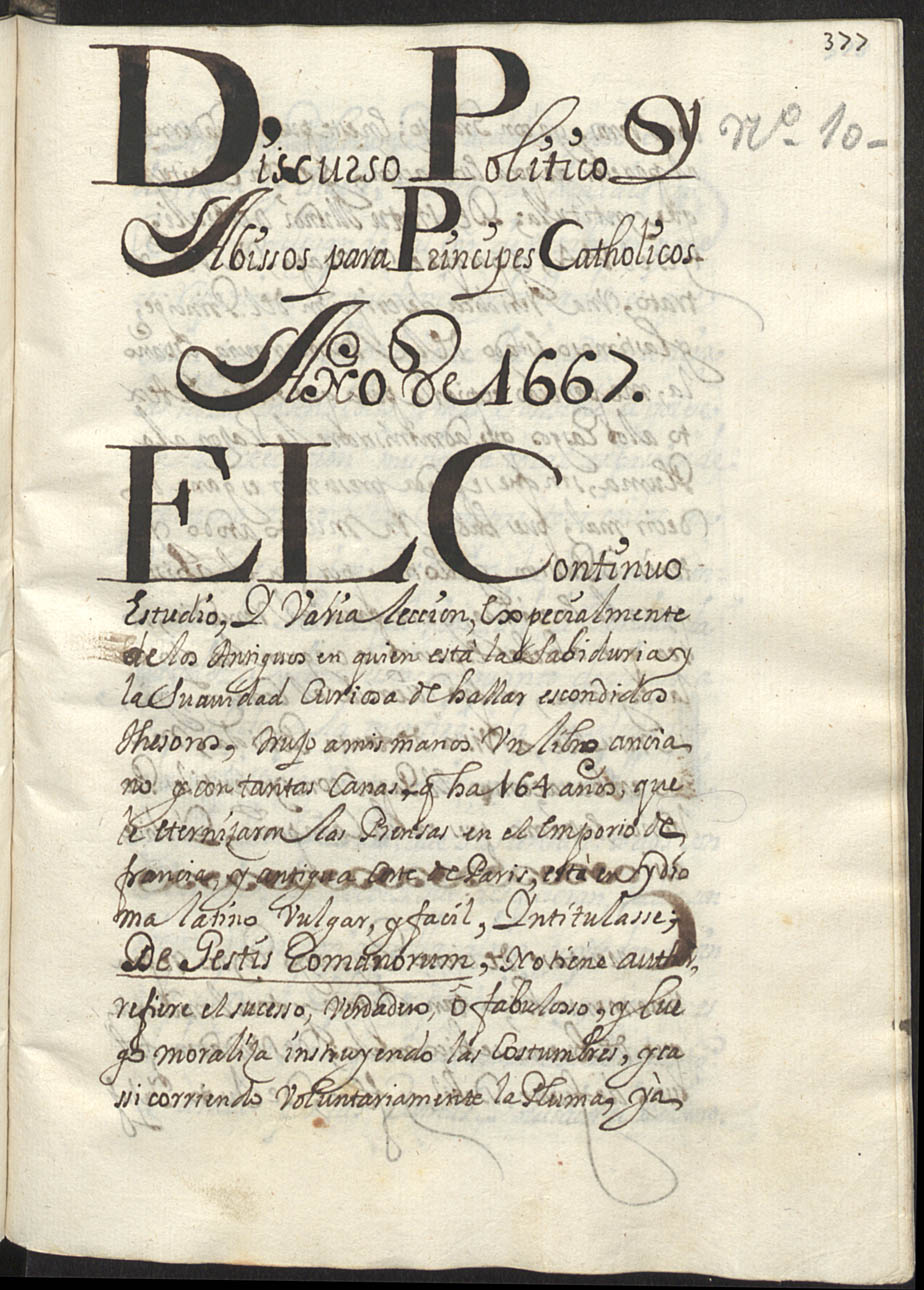 377
Nº 10-
Discurso Politico Y
Abissos para Principes Catholicos
Año de 1667.
EL Continuo
Estudio, I Varia leccion, Expecialmente
de los Antiguos en quien està la Sabiduria y
la Suauidad Curiosa de hallar escondidos
thesoros, trujo a mis manos Vn libro ancia
no y con tantas Canas, q̃ ha 164 años, que
le eternizaron las Prensas en el Emporio de
francia, y antigua Corte de Paris, està en Ydio
ma latino Vulgar, y facil, Intitulasse;
De Gestis Romanorum, No tiene author,
refiere el sucesso, Verdadero, ò fabulosso, y lue
go moraliza instruyendo las Costumbres, y ca
si corriendo Voluntariamente la Pluma, yà